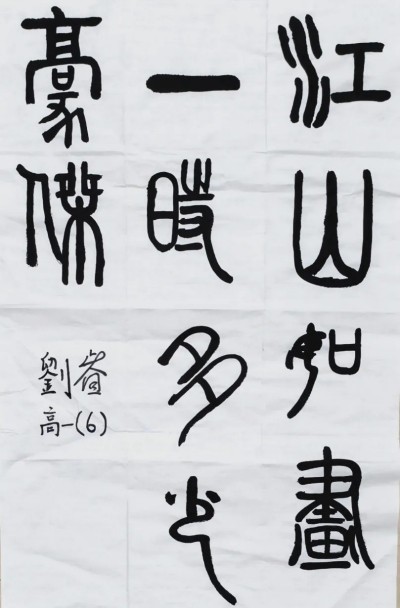 江山如畫
一時多少
豪傑
劉
高一(6)